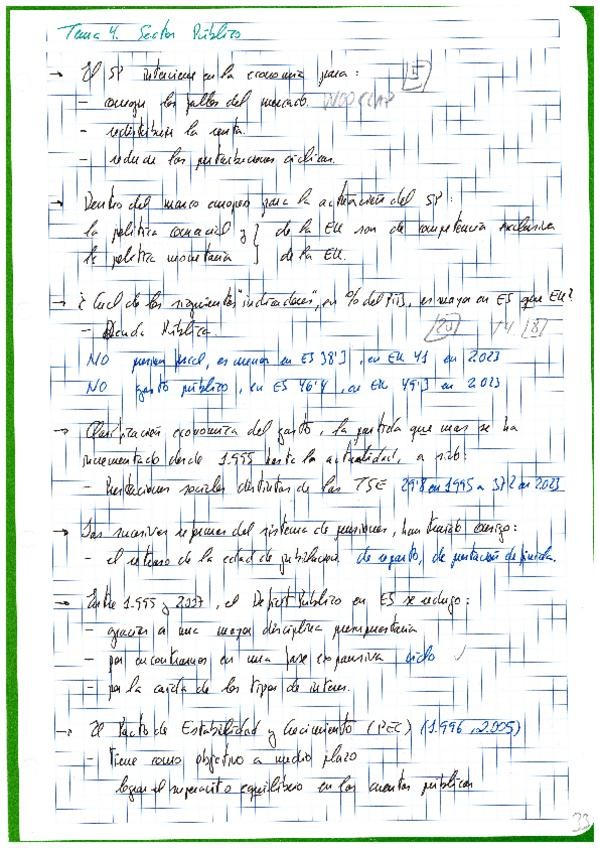 Tema 4. Sector Público
→ El SP interviene en la economía para: 5
- corregir los fallos del mercado. WOOCLAP
- redistribuir la renta.
- reducir las perturbaciones cíclicas.
→ Dentro del marco europeo para la actuación del SP:
la política comercial y } de la EU son de competencia exclusiva
la política monetaria } de la EU.
→ ¿Cuál de los siguientes "indicadores", en % del PIB, es mayor en ES que EU?
- Deuda Pública. 20 T4 8
NO presión fiscal, es menor en ES 38'3, en EU 41 en 2023
NO gasto público, en ES 46'4, en EU 49'3 en 2023
→ Clasificación económica del gasto, la partida que mas se ha
incrementado desde 1.995 hasta la actualidad, a sido:
- Prestaciones sociales distintas de las TSE 29'8 en 1995 a 37'2 en 2023
→ Las sucesivas reformas del sistema de pensiones, han traido consigo:
- el retraso de la edad de jubilación. de reparto, de prestación definida.
→ Entre 1.995 y 2.007, el Deficit Público en ES se redujo:
- gracias a una mayor disciplina presupuestaria
- por encontrarnos en una fase expansiva ciclo ✓
- por la caida de los tipos de interes.
→ El Pacto de Estabilidad y Crecimiento (PEC) (1.996, 2.005)
- Tiene como objetivo a medio plazo
lograr el superavit o equilibrio en las cuentas públicas
33